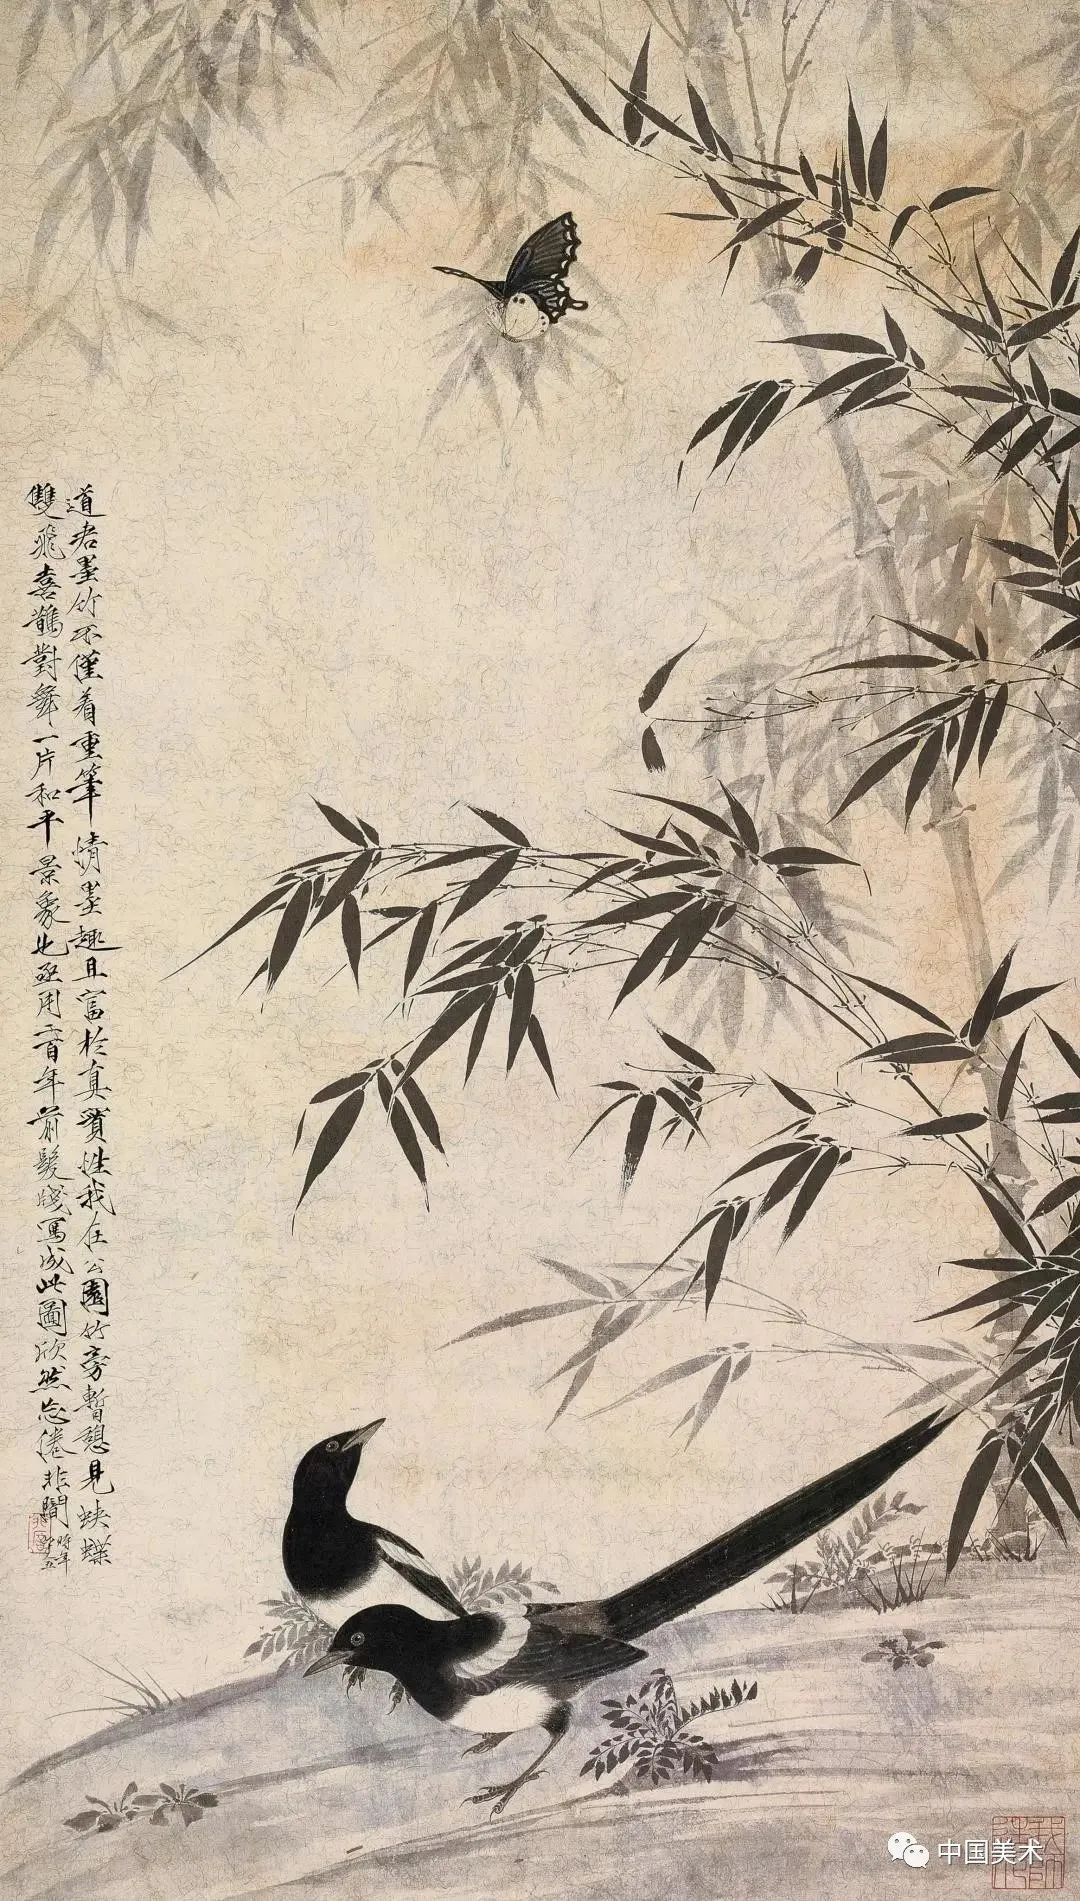 道君墨竹不僅着重筆情墨趣且富於真實性我在公園竹旁暫憩見蛱蝶
雙飛喜鵲對舞一片和平景象也亟用二百年前髮箋寫成此圖欣然忘倦非闇
時年
中国美术